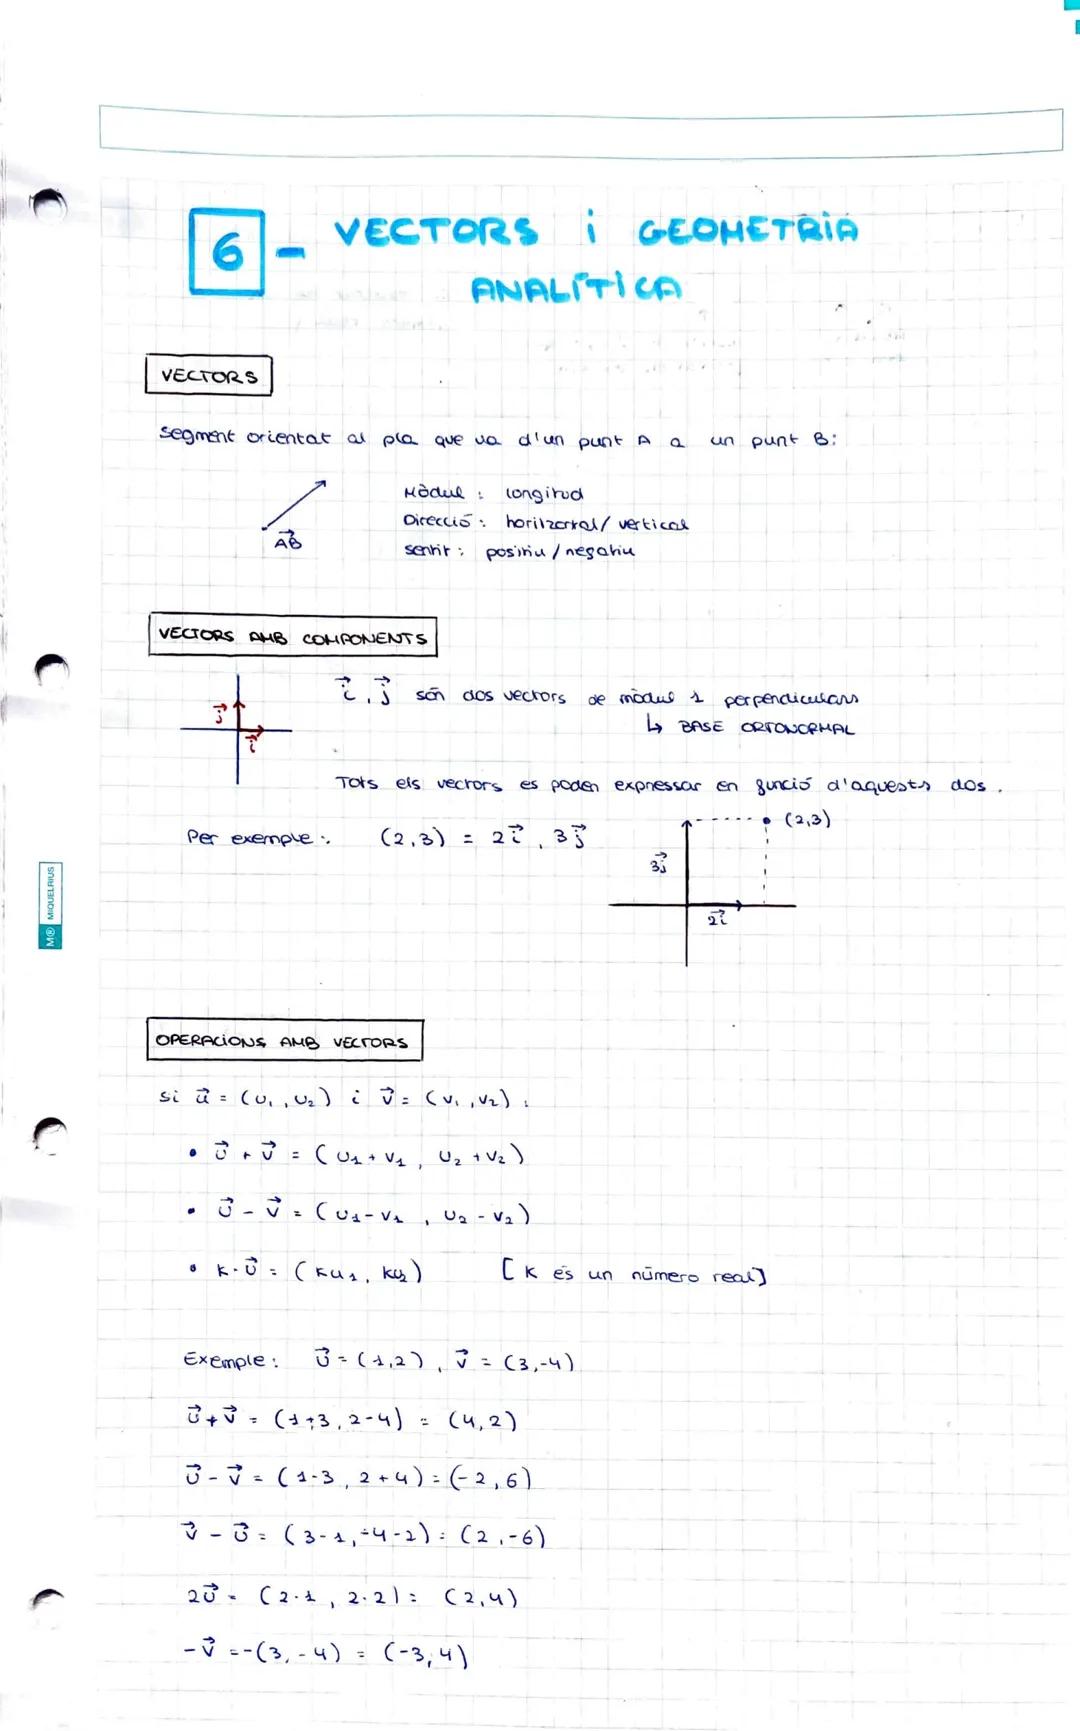 6 - VECTORS i GEOMETRIA
ANALÍTICA
VECTORS
Segment orientat al pla que va d'un punt A a un punt B:
Mòdul : longitud
Direcció : horitzontal / vertical
sentit : positiu / negatiu
A⃗B
VECTORS AMB COMPONENTS
i⃗, j⃗ són dos vectors de mòdul 1 perpendiculars
↳ BASE ORTONORMAL
j⃗
i⃗
Tots els vectors es poden expressar en funció d'aquests dos.
Per exemple : (2,3) = 2i⃗, 3j⃗
(2,3)
3j⃗
2i⃗
M® MIQUELRIUS
OPERACIONS AMB VECTORS
si u⃗ = (u₁, u₂) i v⃗ = (v₁, v₂) :
• u⃗ + v⃗ = (u₁ + v₁, u₂ + v₂)
• u⃗ - v⃗ = (u₁ - v₁, u₂ - v₂)
• K · u⃗ = (Ku₁, Ku₂) [K és un número real]
Exemple : u⃗ = (1,2), v⃗ = (3,-4)
u⃗ + v⃗ = (1+3, 2-4) = (4,2)
u⃗ - v⃗ = (1-3, 2+4) = (-2,6)
v⃗ - u⃗ = (3-1, -4-2) = (2,-6)
2u⃗ = (2·1, 2·2) = (2,4)
-v⃗ = -(3,-4) = (-3,4)